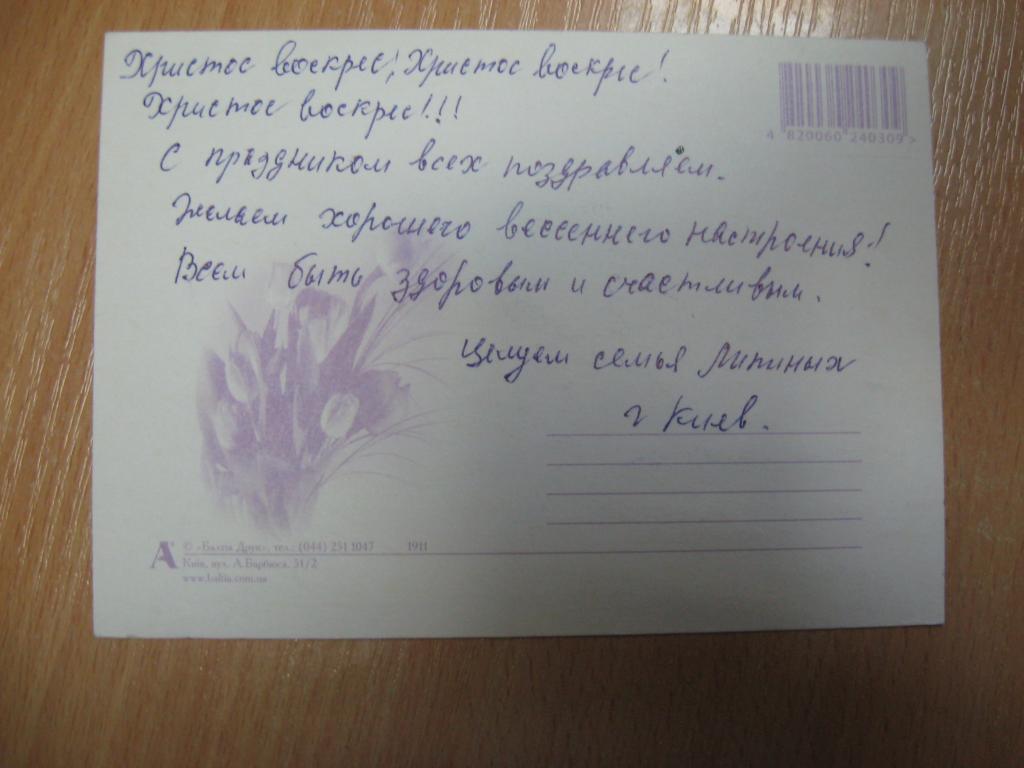 Христос воскрес! Христос воскрес!
Христос воскрес!!!
С праздником всех поздравляем.
Желаем хорошего весеннего настроения!
Всем быть здоровым и счастливым.
Целуем семья Липиных
г Киев.
4 820060 240309 >
© «Балтія Друк», тел.: (044) 251 1047 1911
Київ, вул. А.Барбюса, 51/2
www.baltia.com.ua